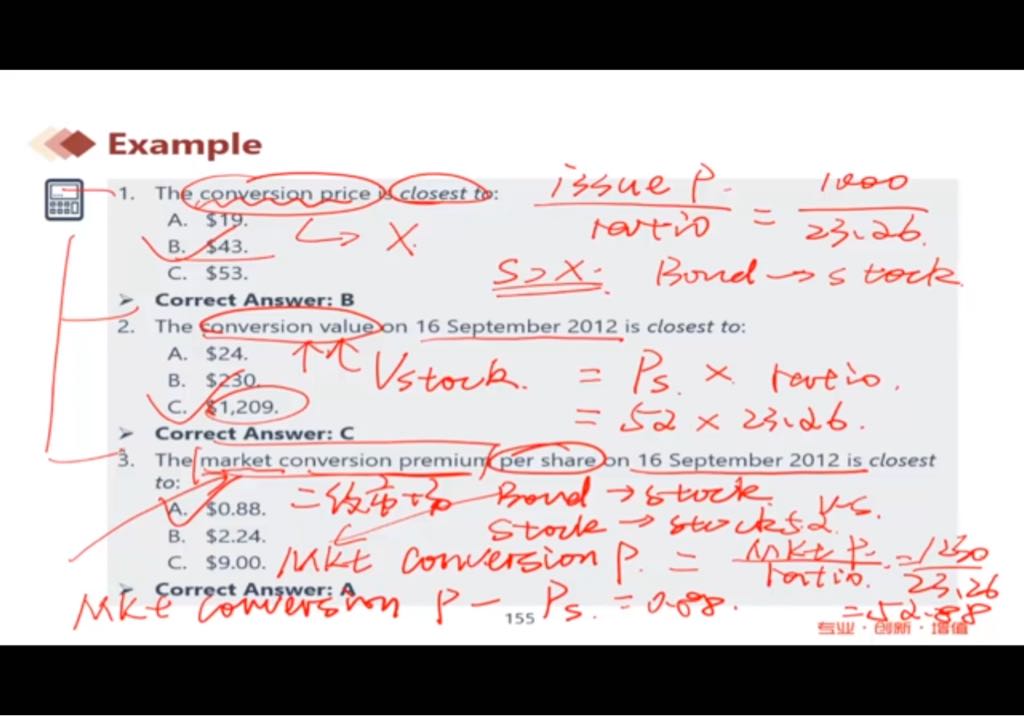 Example
1. The conversion price is closest to:
A. $19.
B. $43.
C. $53.
issue P. / ratio = 1000 / 23.26.
→ X.
S>X. Bond → stock.
➢ Correct Answer: B
2. The conversion value on 16 September 2012 is closest to:
A. $24.
B. $230.
C. $1,209.
↑↑ Vstock. = Ps. × ratio.
= 52 × 23.26.
➢ Correct Answer: C
3. The market conversion premium per share on 16 September 2012 is closest
to:
A. $0.88.
B. $2.24.
C. $9.00.
Bond → stock. v.s.
Stock → stock 52
Mkt conversion P. = Mkt P. / ratio. = 1230 / 23.26
= 52.88
➢ Correct Answer: A
Mkt conversion P - Ps. = 0.88.
155
专业·创新·增值